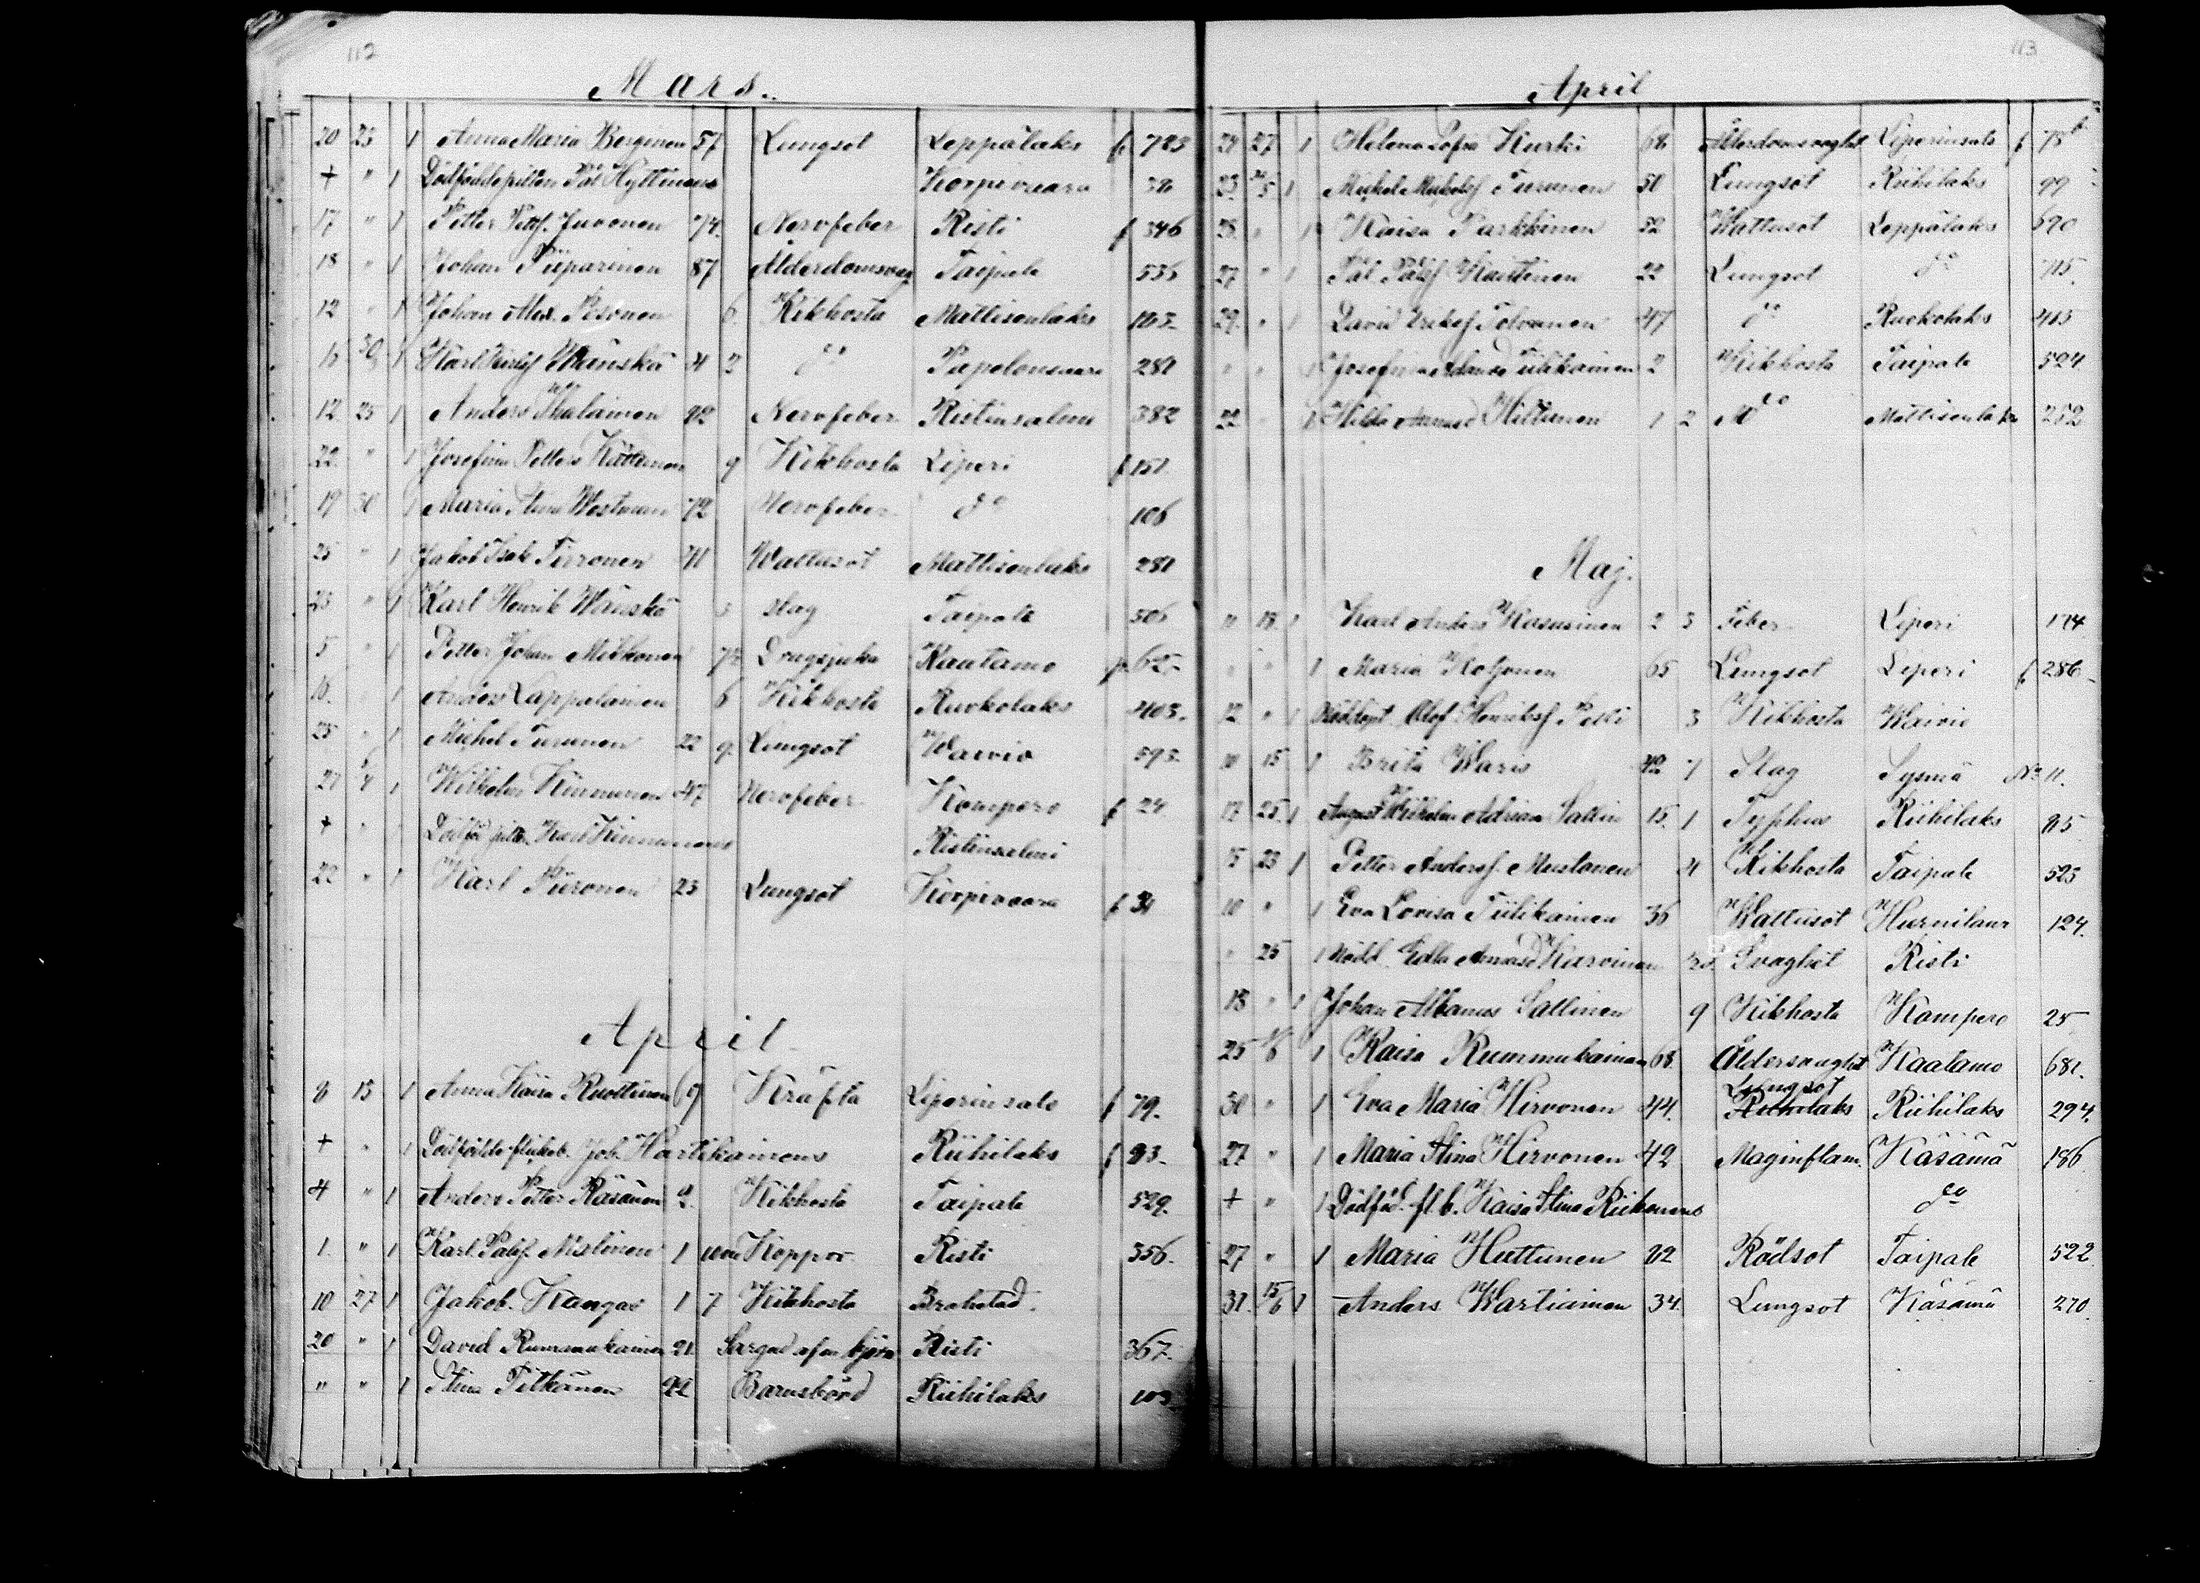 112
Mars.
20 23 1 Anna Maria Bergman 57 Lungsot Leppälaks f 723
+ " 1 Dödfödde pilten Pål Hyttinens Korpivaara 36
17 " 1 Petter Pettf. Juvonen 74. Nervfeber Risti f 346
18 " 1 Johan Piiparinen 87 Ålderdomsvag Taipale 536
12 " 1 Johan Alex. Pesonen 6. Kikhosta Mattisenlaks 163.
1 Karl Wänskä 4 2 do Papelonsaari 281
12. 25 1 Anders 92 Nervfeber Ristinsalmi 382
22. " 1 Josefina Petters 9 Kikhosta Liperi f 151
19 30 Maria Stina Westman 72 Nervfeber do 106
25 " 1 Jakob Isak Tirronen 71 Wattusot Mattisenlaks 281
23 " 1 Karl Henrik Wänskä 3 slag Taipale 506
5 " 1 Petter Johan Mikkonen Kaatamo 625
16. 1 Anders Lappalainen 6 Kikhosta Ruokolaks 403.
25 " 1 Michel Turunen 22 9. Lungsot Waivio 593.
27 1 Wilhelm Kinnunen 47 Nervfeber Kompero f 24
+ " Dödför pilt. Karl Kinnunens Ristinsalmi
22 " 1 Karl Piironen 23 Lungsot Korpivaara f 31
April
8 13 1 Anna Kaisa Ruottinen 69 Kräfta Liperinsalo f 79.
+ " 1 Dödfödda flickeb. Joh. Hartikainens Riihilaks f 83.
4 " 1 Anders Petter Räsänen 2. Kikhosta Taipale 529.
1. " 1 Karl Pålsf. Mistinen 1 Koppor Risti 356.
10 27 1 Jakob. Kangas 1 7 Kikhosta Brahestad.
20 " 1 David Rummukainen 21. Sargad af en björn Risti 367.
" " 1 Stina Pitkänen 42 Barnsbörd Riihilaks 103
113
April
24 27 1 Helena Sofia Kurki 68 Ålderdomsvaghet Liperinsalo f 78
23. 5 1 Mickel Mickelsf Turunen 50 Lungsot Riihilaks 99
28. " 1 Kaisa Parkkinen 52 Wattusot Leppälaks 690
27 " 1 Pål Pålsf Karttunen 22 Lungsot do 715.
29. " 1 David Eriksf Tolvanen 47 do Ruokolaks 415
" " 1 Josefina Adamsd Tiilikainen 2 Kikhosta Taipale 524
22 1 Hilda Annasd Kiltunen 1 2 do Mattisenlaks 252
Maj.
11 18. 1 Karl Anders Kasurinen 2 3 Feber Liperi 174
" " 1 Maria Koljonen 65 Lungsot Liperi f 286.
12 " 1 Nöddöpt Olof Henriksf Pesti 3 Kikhosta Waivio
10 15 1 Brita Waris 42 7 Slag Sysmä No 11.
17 25 1 August Wilhelm Adrian Sallin 15. 1 Typhus Riihilaks 85
15 23 1 Petter Andersf. Mustonen 4 Kikhosta Taipale 523
10 " 1 Eva Lovisa Tiilikainen 36 Wattusot Hurnilaur 124.
" 25 1 Nödd. Edla Annasd Karvinen Svaghet Risti
18 " 1 Johan Albanus Sallinen 9 Kikhosta Kompero 25
25 1/6 1 Kaisa Rummukainen 68 Åldersvaghet Kaatamo 681.
30 " 1 Eva Maria Hirvonen 44. Riihilaks Lungsot Riihilaks 294.
27 " 1 Maria Stina Hirvonen 42 Maginflam. Käsämä 186
+ " 1 Dödföd. fl. b. Kaisa Stina Riikonens do
27 " 1 Maria Huttunen 62 Rödsot Taipale 522
31. 15/6 1 Anders Wartiainen 34. Lungsot Käsämä 270.